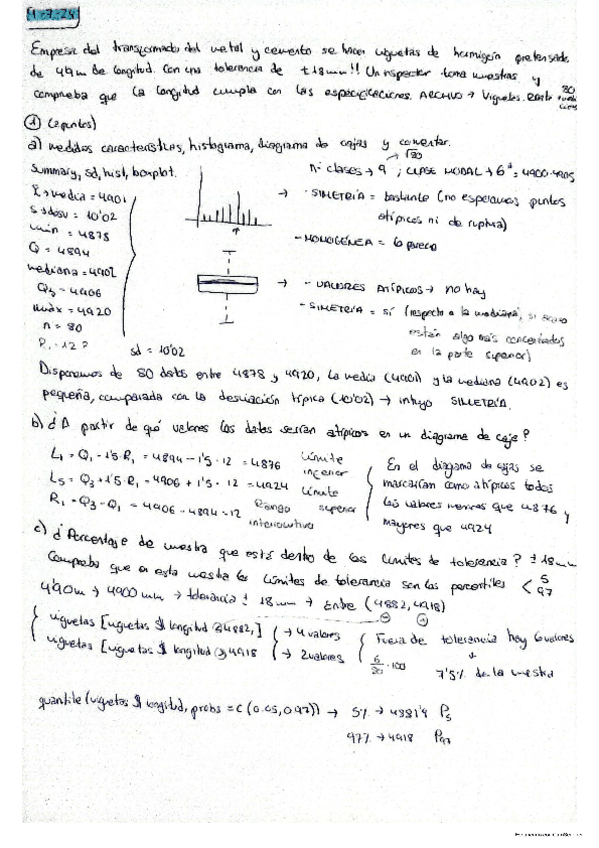 1.7.24
Empresa del transformado del metal y cemento se hacen viguetas de hormigón pretensado
de 4'9m de longitud. Con una tolerancia de ±18mm!! Un inspector toma muestras y
comprueba que la longitud cumpla con las especificaciones. ARCHIVO → Viguetas. 80
① (2 puntos)
a) medidas características, histograma, diagrama de cajas y comentar.
Summary, sd, hist, boxplot.
nº clases → 9 ; CLASE MODAL → 6ª = 4900-4905
√80
x̄ → media = 4901
S → desv = 10'02
min = 4878
Q = 4894
mediana = 4902
Q3 = 4906
max = 4920
n = 80
R. 12?
sd = 10'02
→ - SIMETRÍA = bastante (no esperamos puntos
atípicos ni de ruptura)
- HOMOGÉNEA = lo parece
→ - VALORES ATÍPICOS → no hay
- SIMETRÍA = sí (respecto a la mediana, si
están algo más concentrados
en la parte superior)
Disponemos de 80 datos entre 4878 y 4920, la media (4901) y la mediana (4902) es
pequeña, comparada con la desviación típica (10'02) → intuyo SIMETRÍA.
b) ¿A partir de qué valores los datos serían atípicos en un diagrama de caja?
LI = Q1 - 1'5·RI = 4894 - 1'5·12 = 4876 Límite inferior
LS = Q3 + 1'5·RI = 4906 + 1'5·12 = 4924 Límite superior
RI = Q3 - Q1 = 4906 - 4894 = 12 Rango intercuartílico
En el diagrama de cajas se
marcarían como atípicos todos
los valores menores que 4876 y
mayores que 4924
c) ¿Porcentaje de muestra que está dentro de los límites de tolerancia? ±18mm
Comprueba que en esta muestra los límites de tolerancia son los percentiles < 5
97
4'90m → 4900 mm → tolerancia ± 18mm → Entre (4882, 4918)
viguetas [viguetas $ longitud ≤ 4882,] → 4 valores
viguetas [viguetas $ longitud ≥ 4918 → 2 valores
Fuera de tolerancia hay 6 valores
6/80 · 100
7'5% de la muestra
quantile (viguetas $ longitud, probs = c (0.05, 0.97)) → 5% → 4881'9 P5
97% → 4918 P97